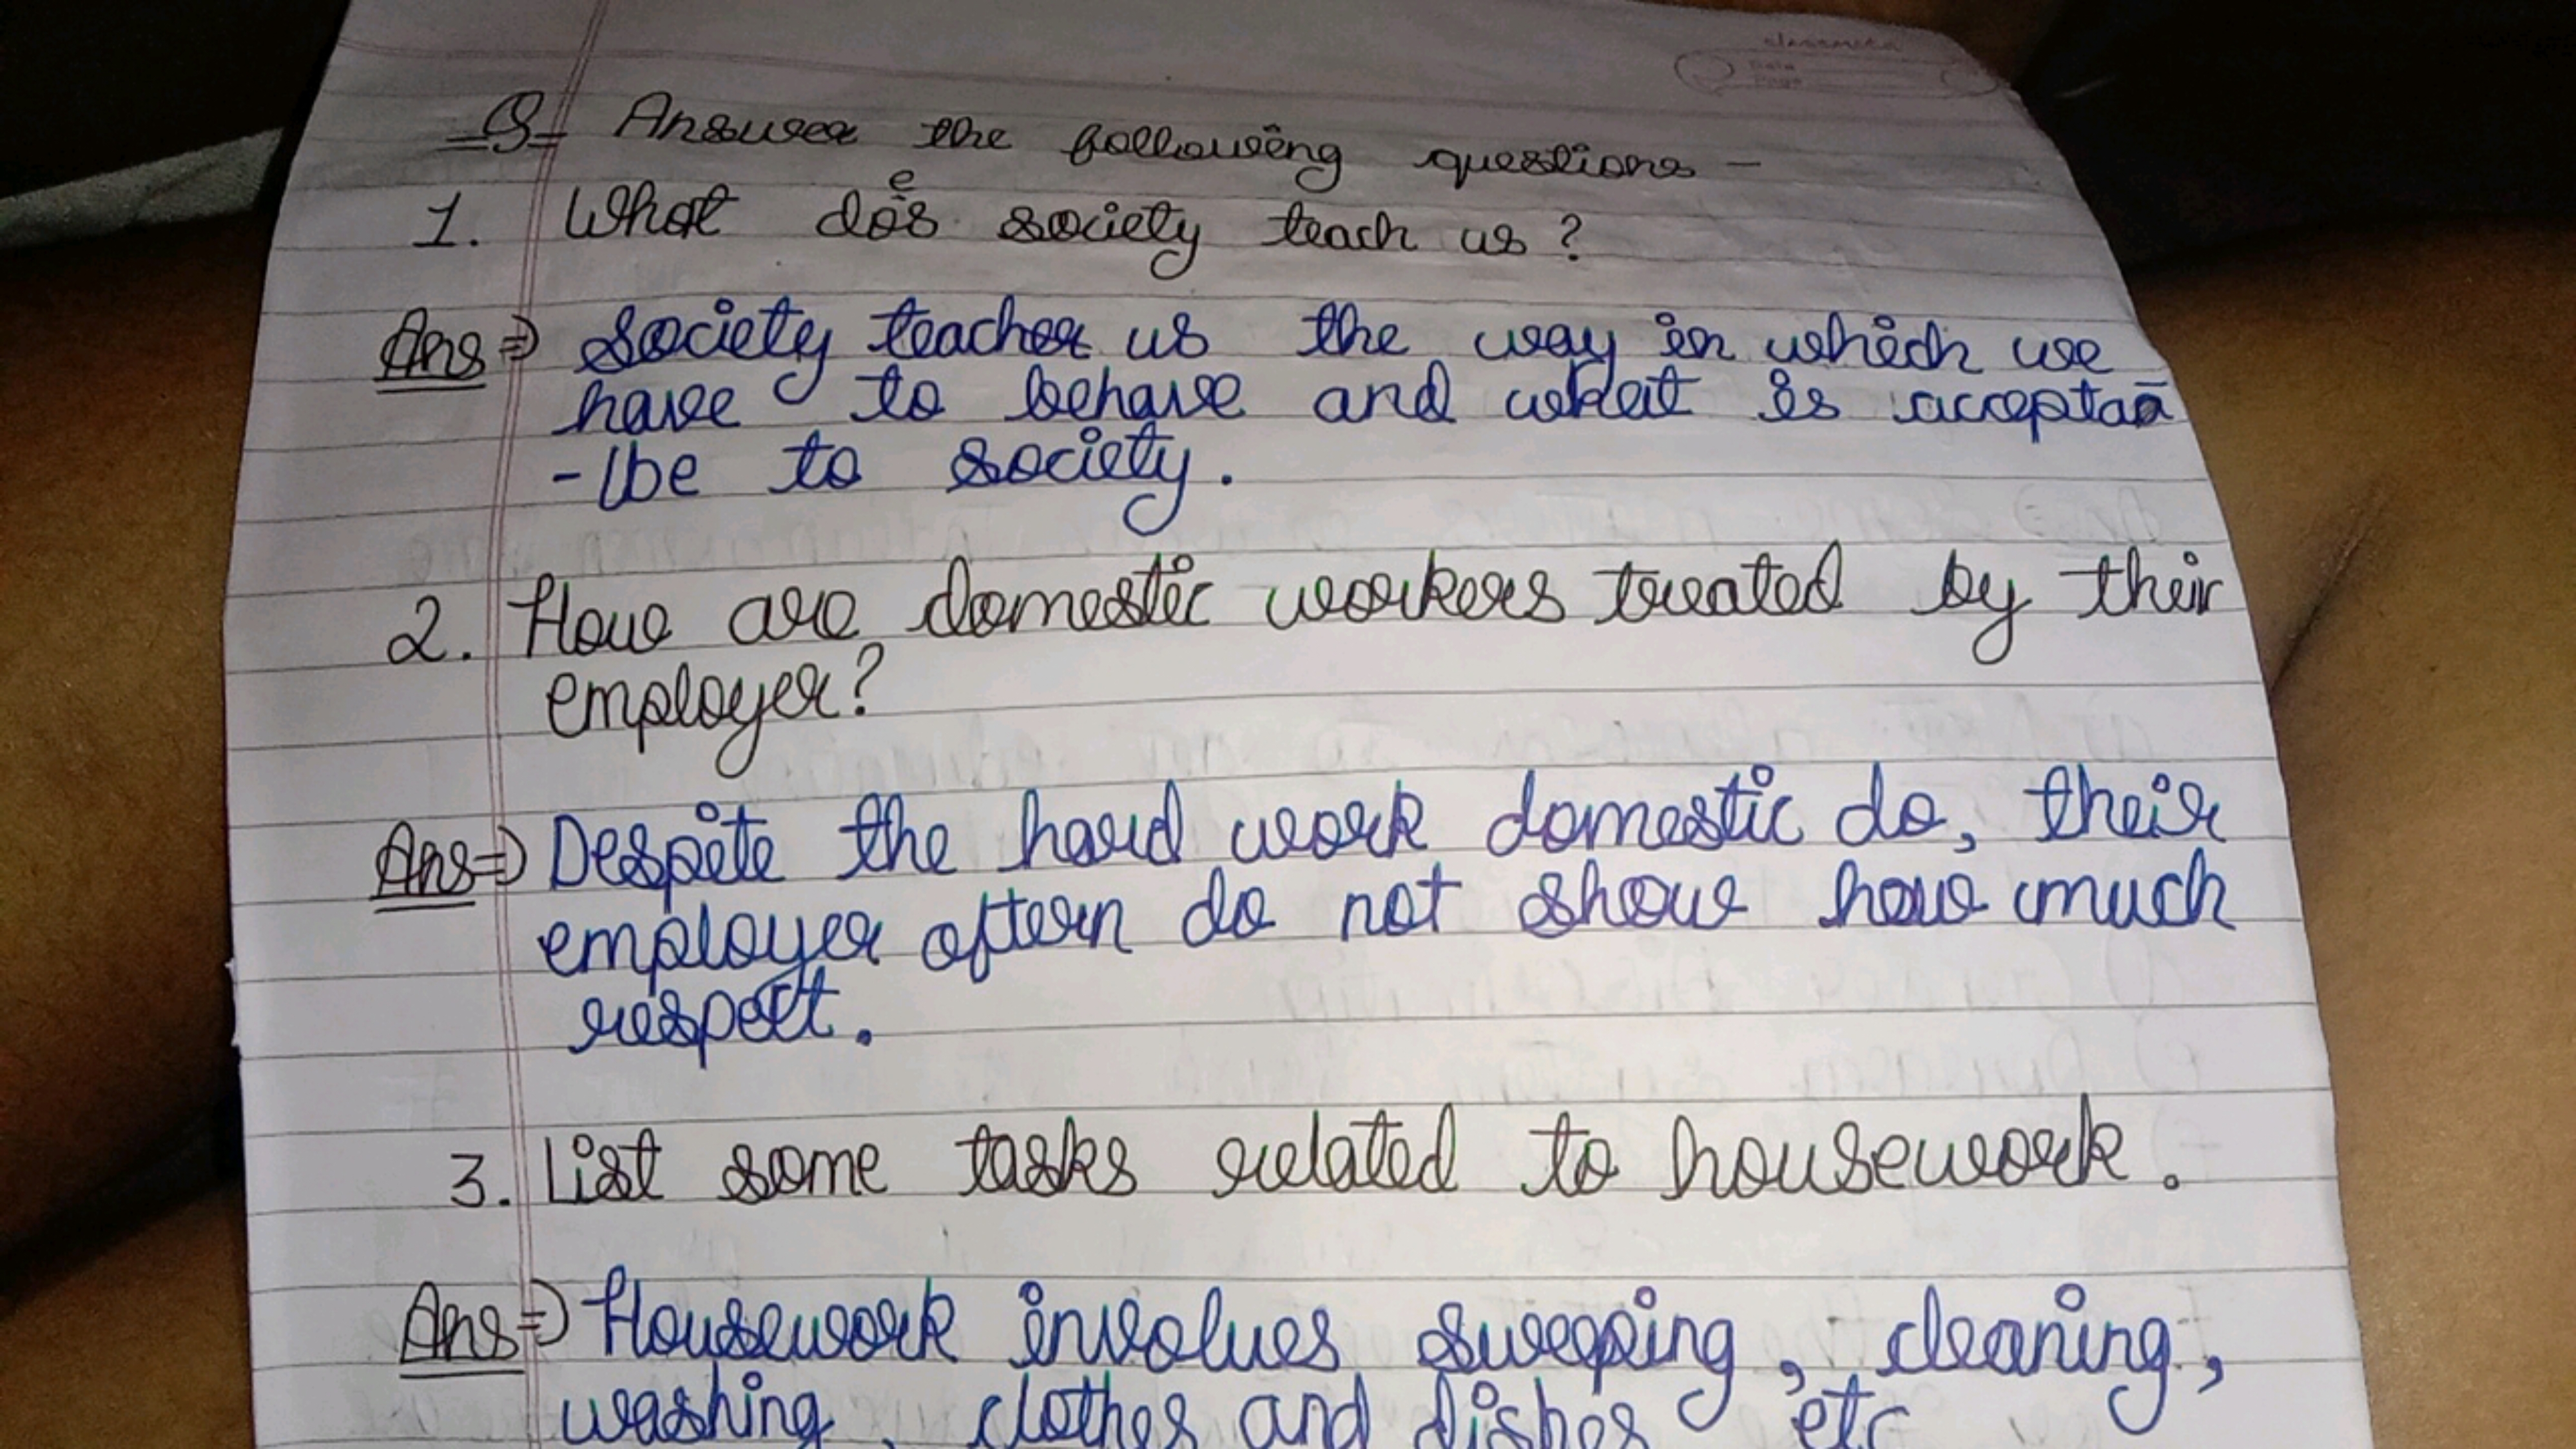 classmate
Date
Page
Q- Answer the following questions -
1. What does society teach us ?
Ans => Society teacher us the way in which we
have to behave and what is acceptaa
-lbe to society.
2. How are domestic workers treated by their
employer?
Ans => Despite the hard work domestic do, their
employer oftern do not show how much
respect.
3. List some tasks related to housework.
Ans => Housework involves sweeping, cleaning,
washing, clothes and dishes etc